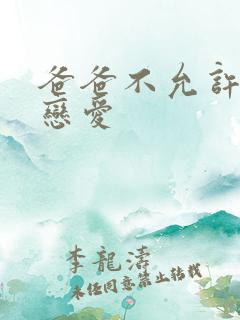 爸爸不允許
戀愛
李龍濤
未经同意禁止转载